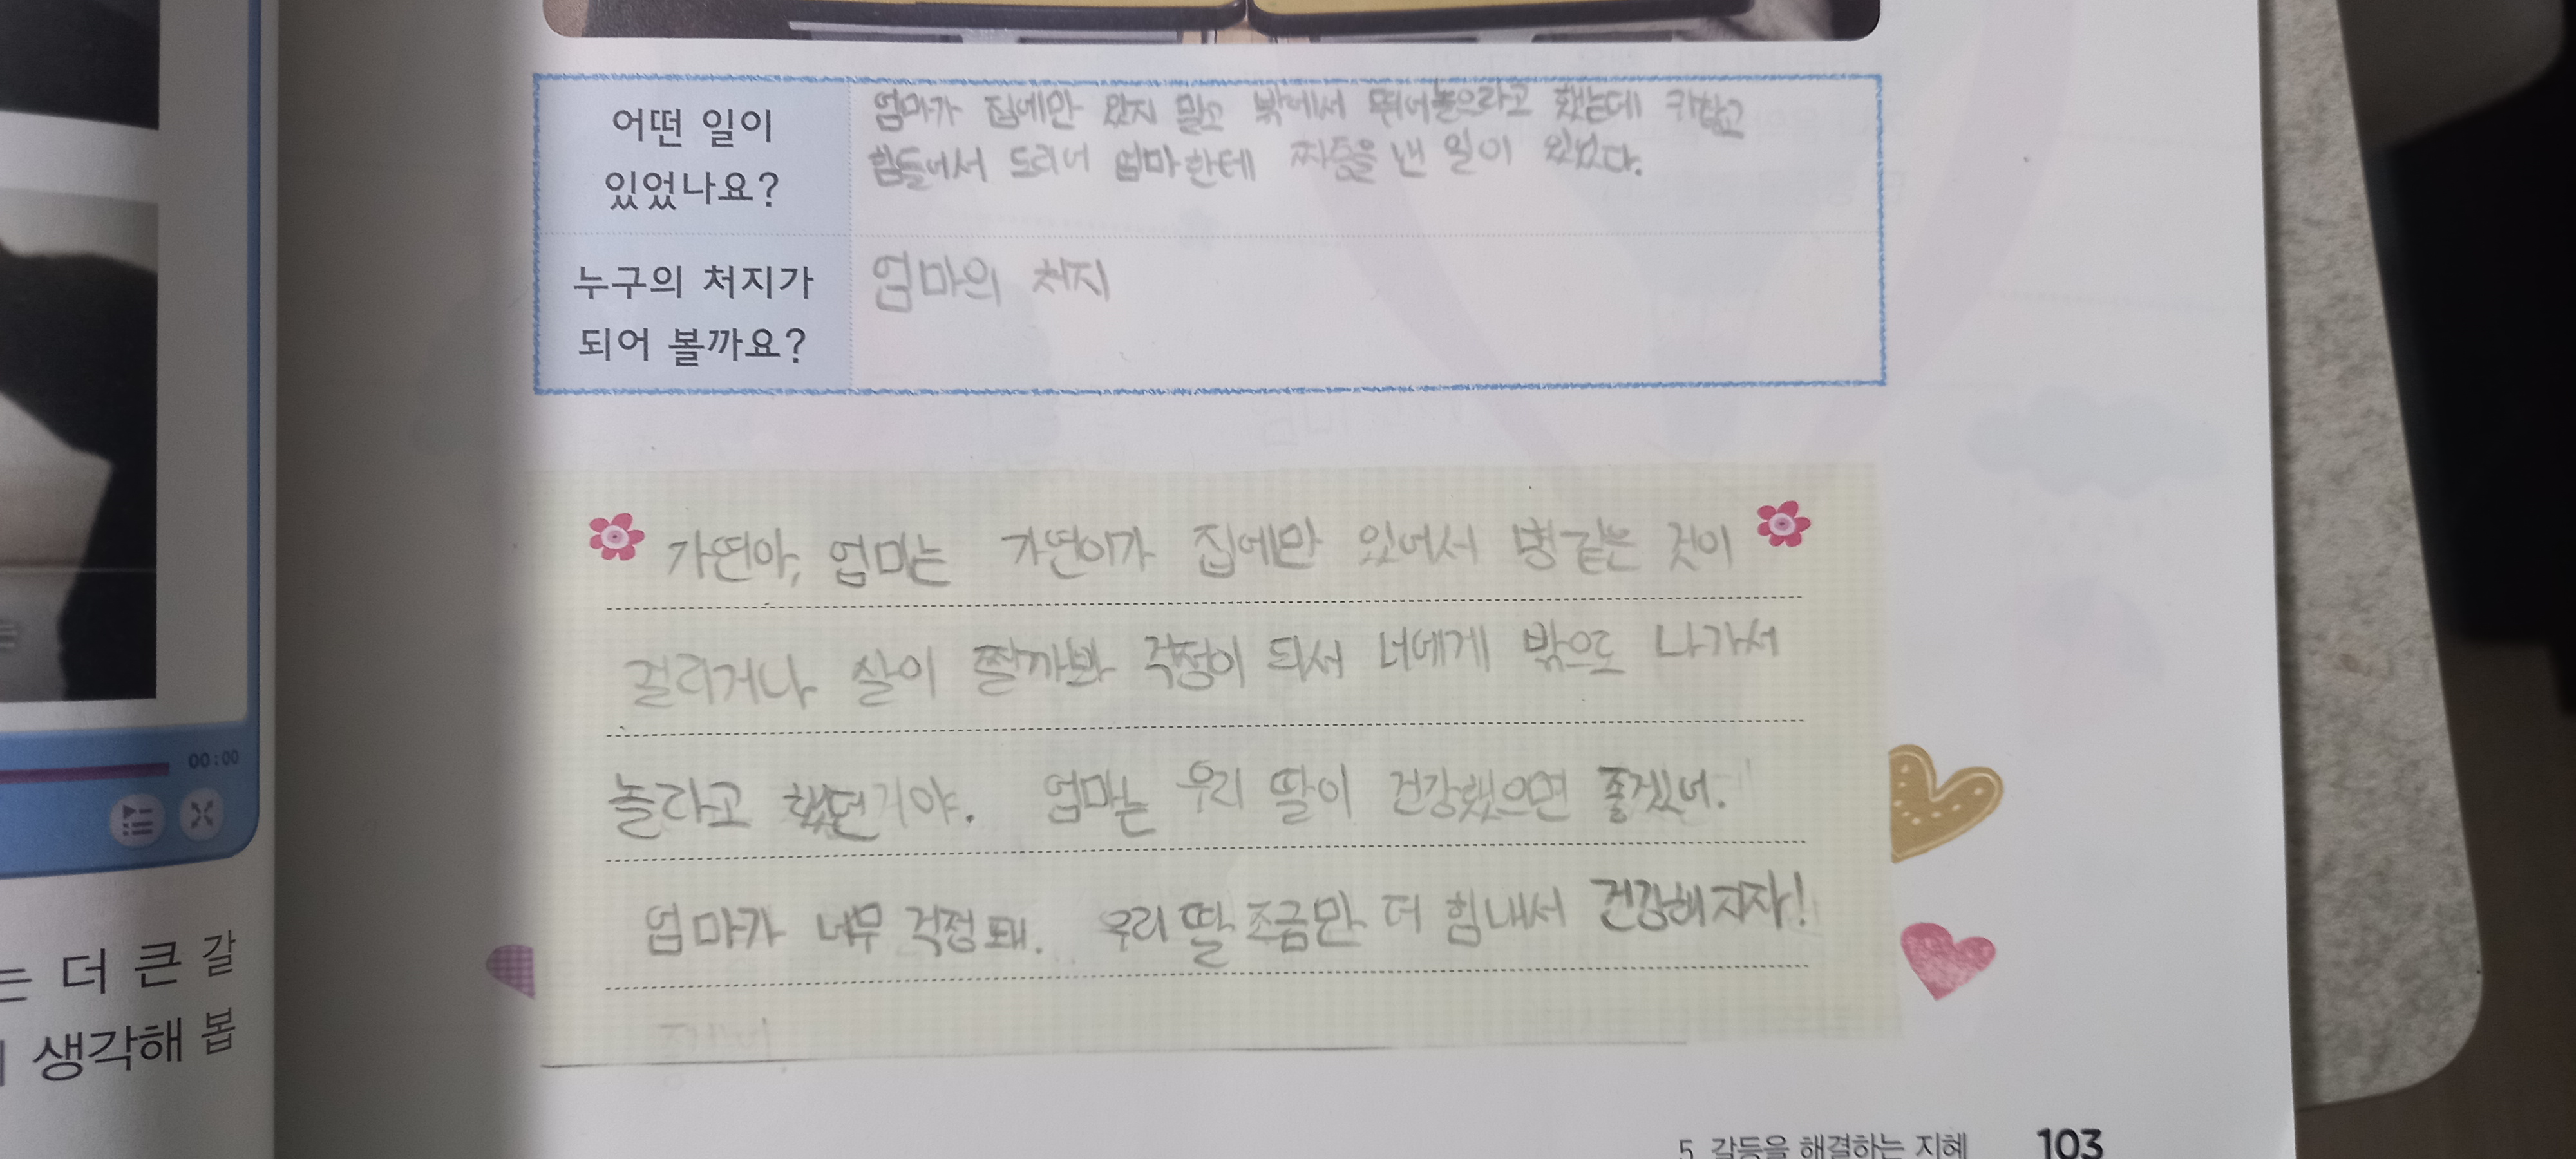 어떤 일이
있었나요?
엄마가 집에만 있지 말고 밖에서 뛰어놀으라고 했는데 귀찮고
힘들어서 도리어 엄마한테 짜증을 낸 일이 있었다.
누구의 처지가
되어 볼까요?
엄마의 처지
가연아, 엄마는 가연이가 집에만 있어서 병같은 것이
걸리거나 살이 찔까봐 걱정이 되서 너에게 밖으로 나가서
놀라고 했던거야. 엄마는 우리 딸이 건강했으면 좋겠어.
엄마가 너무 걱정 돼. 우리 딸 조금만 더 힘내서 건강해지자!
00:00
는 더 큰 갈
생각해 봅
5 갈등을 해결하는 지혜 103